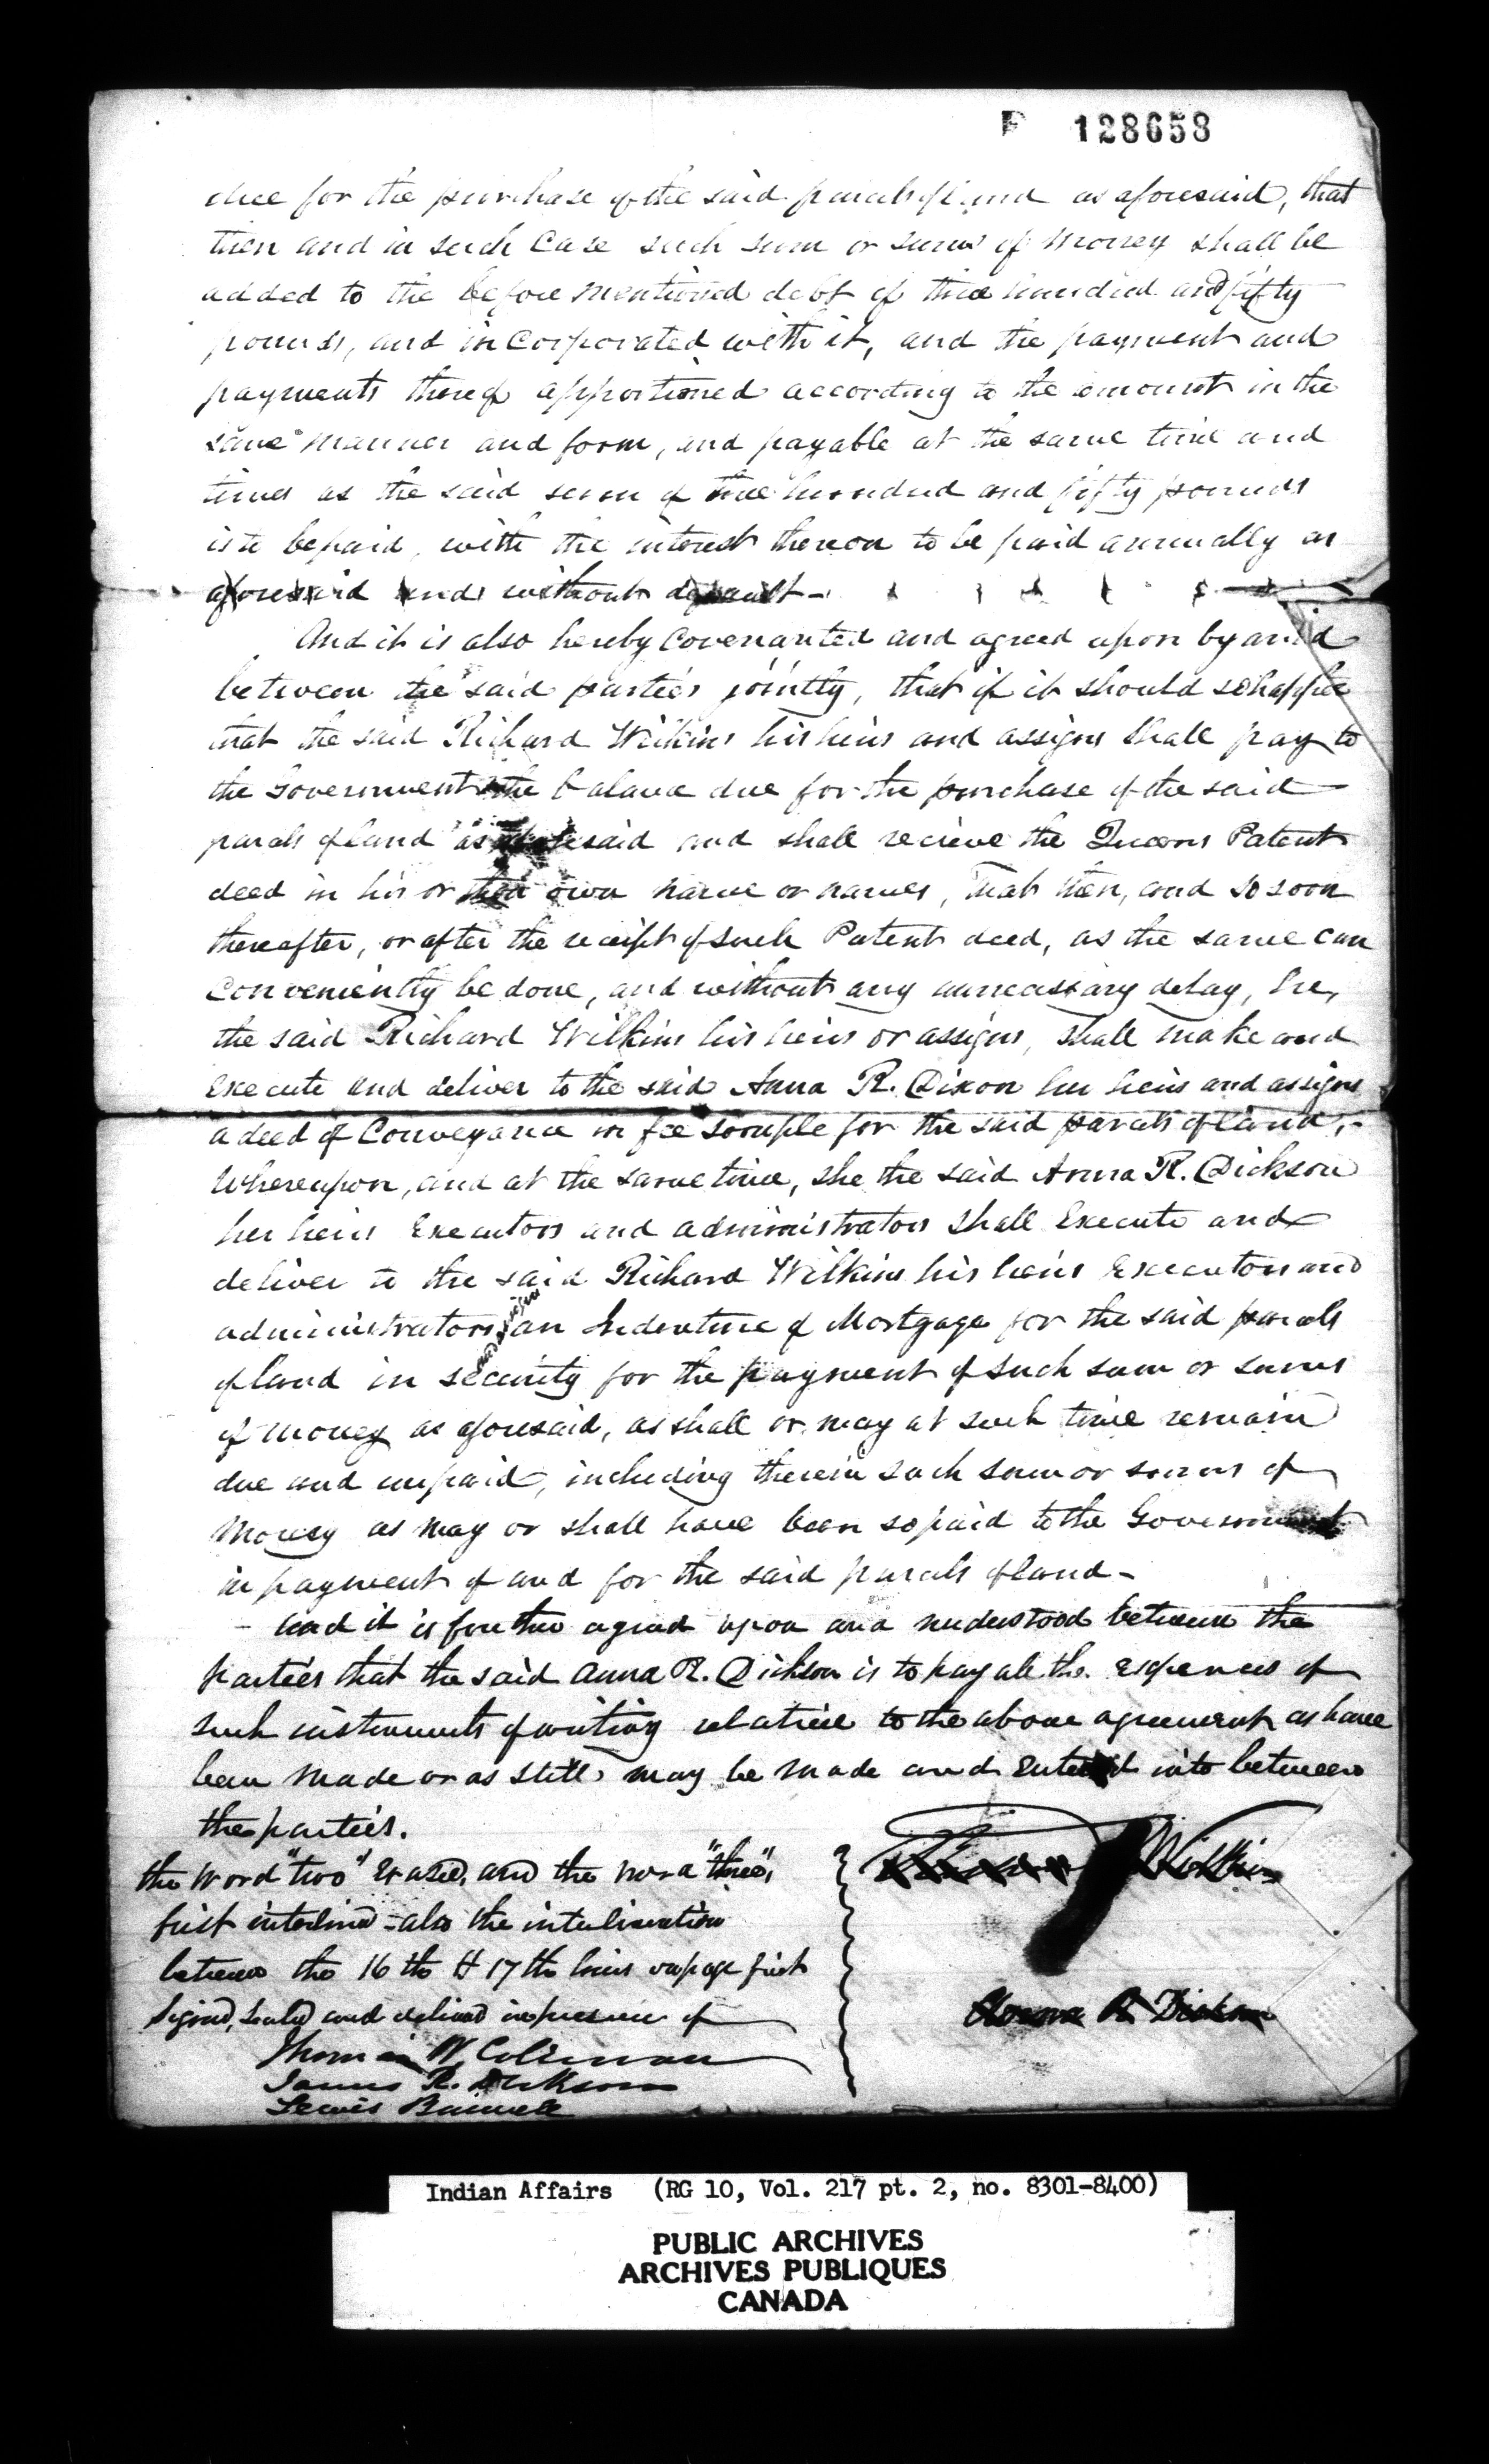 128658
due for the purchase of the said parcels of land as aforesaid, that
then and in such Case such sum or sums of Money shall be
added to the before mentioned debt of three hundred and fifty
pounds, and incorporated with it, and the payment and
payments thereof apportioned according to the amount in the
same manner and form, and payable at the same time and
times as the said sum of three hundred and fifty pounds
is to be paid, with the interest thereon to be paid annually as
aforesaid and without default -
And it is also hereby Covenanted and agreed upon by and
between the said parties jointly, that if it should so happen
that the said Richard Wilkins his heirs and assigns shall pay to
the Government the balance due for the purchase of the said
parcels of land as aforesaid and shall recieve the Queens Patent
deed in his or their own name or names, that then, and so soon
thereafter, or after the receipt of such Patent deed, as the same can
Conveniently be done, and without any unnecessary delay, he,
the said Richard Wilkins his heirs or assigns, shall make and
execute and deliver to the said Anna R. Dixon her heirs and assigns
a deed of Conveyance in fee simple for the said parcels of land, -
Whereupon, and at the same time, she the said Anna R. Dickson
her heirs Executors and administrators shall Execute and
deliver to the said Richard Wilkins his heirs Executors and
administrators and assigns an Indenture of Mortgage for the said parcels
of land in security for the payment of such sum or sums
of money as aforesaid, as shall or may at such time remain
due and unpaid, including therein such sum or sums of
Money as may or shall have been so paid to the Government
in payment of and for the said parcels of land -
- And it is further agreed upon and understood between the
Parties that the said Anna R. Dickson is to pay all the expences of
such instruments of writing relative to the above agreement as have
been made or as still may be made and Entered into between
the parties.
the word "two" Erased, and the word "three",
first interlined - also the interlineation
between the 16th & 17th lines on page first
Signed, Sealed and delivered in presence of
Thomas W. Coleman
James R. Dickson
Lewis
Richard Wilkins
Anna R. Dickson
Indian Affairs (RG 10, Vol. 217 pt. 2, no. 8301-8400)
PUBLIC ARCHIVES
ARCHIVES PUBLIQUES
CANADA